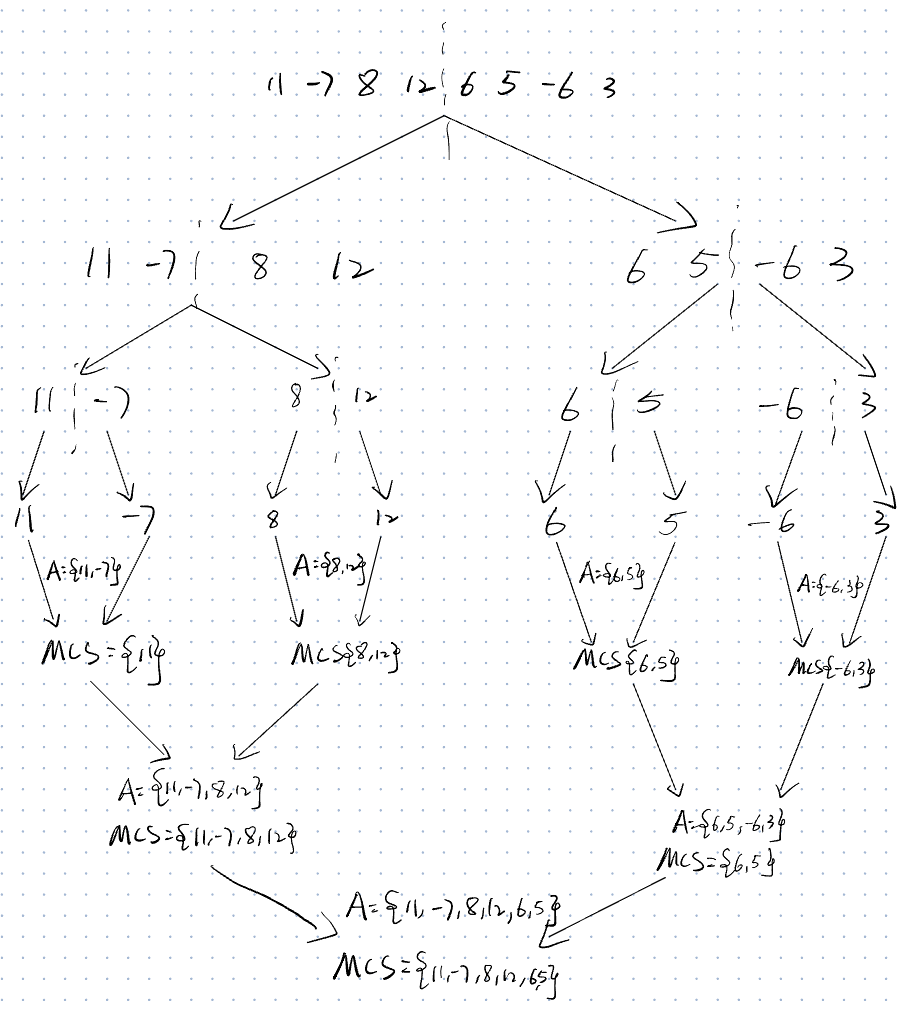 11 -7 8 12 6 5 -6 3
11 -7 8 12 6 5 -6 3
11 -7 8 12 6 5 -6 3
11 -7 8 12 6 5 -6 3
A={11,-7} A={8,12} A={6,5} A={-6,3}
MCS={11} MCS{8,12} MCS{6,5} MCS{-6,3}
A={11,-7,8,12}
MCS={11,-7,8,12}
A={6,5,-6,3}
MCS={6,5}
A={11,-7,8,12,6,5}
MCS={11,-7,8,12,6,5}